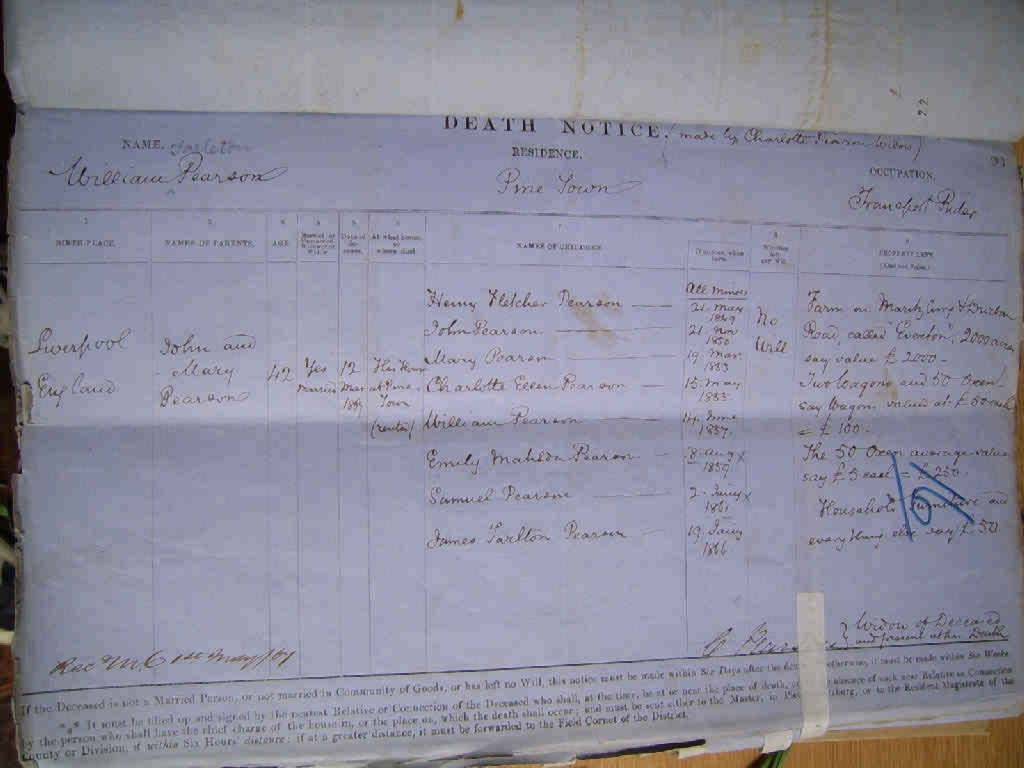 22
DEATH NOTICE. (made by Charlotte Pearson Widow)
NAME. Tarleton
William Pearson
RESIDENCE.
Pine Town
OCCUPATION.
Transport Rider
BIRTH-PLACE.
NAMES OF PARENTS.
AGE
NAMES OF CHILDREN
PROPERTY LEFT
Liverpool
England
John and
Mary
Pearson
42
Yes
Married
12
Mar
His House
at Pine
Town
(rented)
All Minors
Henry Fletcher Pearson
21. May
1849
John Pearson
21. Nov
1850
Mary Pearson
19. Mar
1853
Charlotte Ellen Pearson
15. May
1855
William Pearson
14. June
1857.
Emily Matilda Pearson
8. Aug
1859
Samuel Pearson
1861
James Tarlton Pearson
19. Jany
1866
No
Will
Farm on Maritzburg & Durban
Road called "Everton", 2000 acres
say value £2000 -
Two Wagons and 50 Oxen
say Wagons valued at £50 each
= £100 -
The 50 Oxen average value
say £5 each - £250.
Household Furniture and
everything else say £50.
Widow of Deceased
and present at her Death
1st May
If the Deceased is not a Married Person, or not married in Community of Goods, or has left no Will, this notice must be made within Six Days after the death, otherwise, it must be made within Six Weeks.
*** It must be filled up and signed by the nearest Relative or Connection of the Deceased who shall, at the time, be at or near the place of death, or in absence of such near Relative or Connection
by the person who shall have the chief charge of the house in, or the place on, which the death shall occur; and must be sent either to the Master, to Pietermaritzburg, or to the Resident Magistrate of the
County or Division, if within Six Hours' distance; if at a greater distance, it must be forwarded to the Field Cornet of the District.